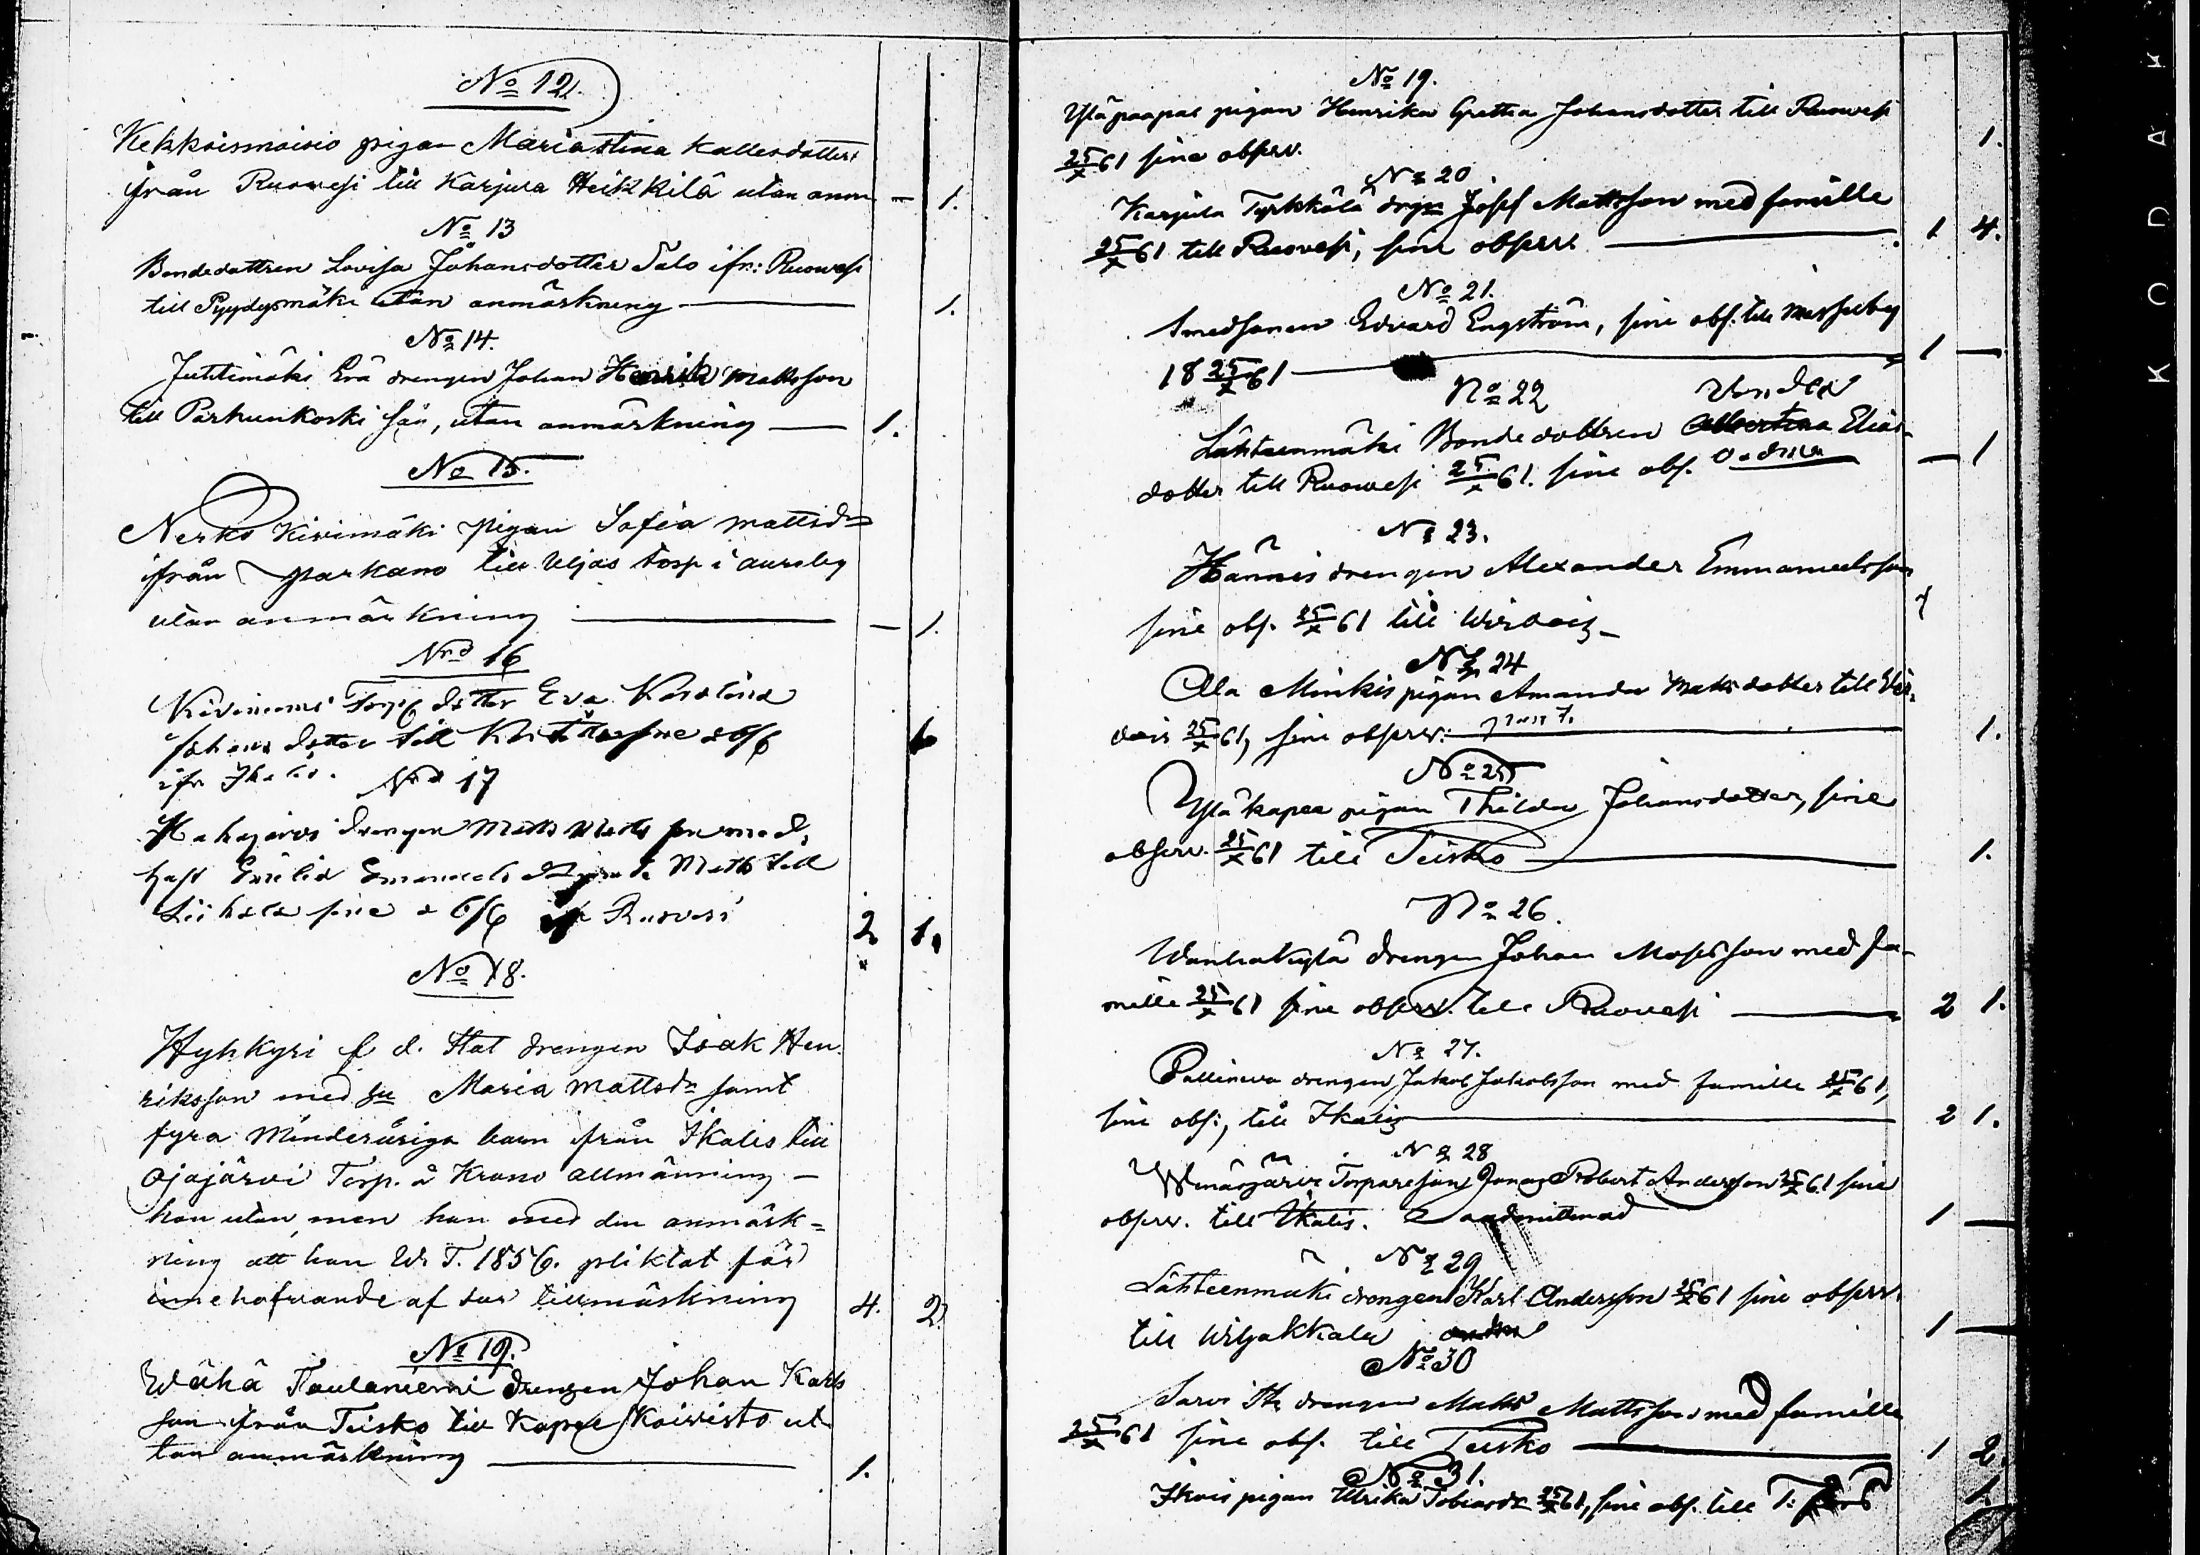 No 12.
Kekkoismaisio pigan Mariastina Kallesdotter
från Ruowesi till Karjura Heikkilä utan anm — 1.
No 13
Bondedottren Lovisa Johansdotter Talo ifr: Ruowesi
till Pyydysmäki utan anmärkning — 1.
No 14.
Juttimäki Erä drengen Johan Henrik Mattsson
till Parkunkoski såg, utan anmärkning — 1.
No 15.
Nerko Kivimäki pigan Sofia Mattsdr
ifrån Parkano till Uljas torp i
utan anmärkning — 1.
Nro 16
Kiviniemi Torp dotter Eva Karolina
Johans dotter till sine 6/6
ifr Ikalis.
Nro 17
drengen Matts Matts son med
Emelia Emanuels Matts till
sine 6/6 Ruovesi 2 1.
No 18.
Hyhkyri f d. Stat drengen Isak Hen-
riksson med hu Maria Mattsdr samt
fyra Minderåriga barn från Ikalis till
Ojajärvi Torp. å Krono allmänning —
hon utan, men han med den anmärk=
ning att han W. T. 1856. pliktat för
innehafvande af tillmärkning 4. 2.
No 19.
Wähä Taulaniemi drengen Johan Karls
son från Teisko till Kapee Koivisto u-
tan anmärkning — 1.
No 19.
Yläpaapas pigan Henrika Gretha Johansdotter till Ruowesi
25/X 61 sine observ. 1.
No 20
Karjula Tyrkkölä drgn Josef Mattsson med familie
25/X 61 till Ruovesi, sine observ — 1 4.
No 21.
Smedsonen Edvard Engström, sine obs. till
18 25/X 61 — 1 —
No 22
Lähteenmäki Bondedottren Albertina Elias-
dotter till Ruowesi 25/X 61. sine obs. — 1
No 23.
Hannis drengen Alexander Emmanuelsson
sine obs. 25/X 61 till Wirdois — 1
No 24
Ala Minkis pigan Amanda Mattsdotter till Wir-
dois 25/X 61, sine observ: — 1.
No 25
Ylä kapee pigan Thilda Johansdotter, sine
observ. 25/X 61 till Teisko — 1.
No 26.
Wanhakylä drengen Johan Mosesson med fa-
mille 25/X 61 sine observ. till Ruovesi — 2 1.
No 27.
Pallineva drengen Jakob Jakobsson med familie 25/X 61,
sine obs:, till Ikalis — 2 1.
No 28
Torparesonen Jonas Robert Andersson 25/X 61 sine
observ. till Ikalis. 1 —
No 29
Lähteenmäki drengen Karl Andersson 25/X 61 sine observ.
till Wiljakkala 1 —
No 30
Sarvi drengen Matts Mattsson med familie
25/X 61 sine obs. till Teisko — 1 2.
No 31.
Ikois pigan Ulrika Tobiasdr 25/X 61, sine obs. till T: fors 1.
KODAK